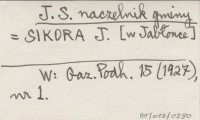 J. S. naczelnik gminy
= SIKORA J. [w Jabłonce]
W: Gaz. Podh. 15 (1927),
nr 1.